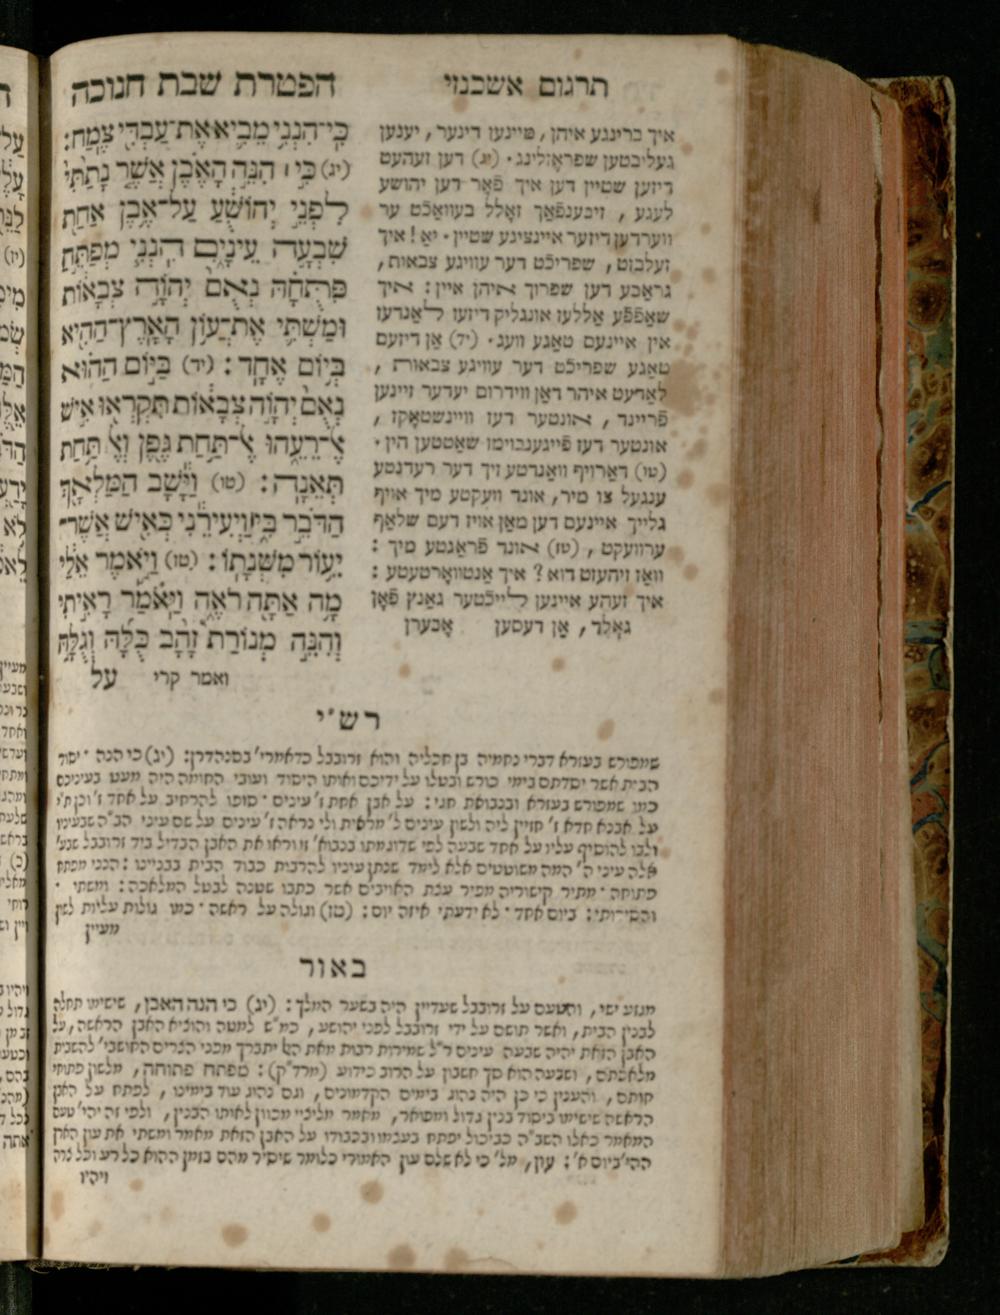 הפטרת שבת חנוכה
כִּֽי־הִנְנִ֤י מֵבִ֙יא֙ אֶת־עַבְדִּ֣י צֶ֔מַח׃
(יג) כִּ֣י ׀ הִנֵּ֣ה הָאֶ֗בֶן אֲשֶׁ֤ר נָתַ֙תִּי֙
לִפְנֵ֣י יְהוֹשֻׁ֔עַ עַל־אֶ֥בֶן אַחַ֖ת
שִׁבְעָ֣ה עֵינָ֑יִם הִנְנִ֧י מְפַתֵּ֣חַ
פִּתֻּחָ֗הּ נְאֻם֙ יְהוָ֣ה צְבָא֔וֹת
וּמַשְׁתִּ֛י אֶת־עֲוֺ֥ן הָאָֽרֶץ־הַהִ֖יא
בְּי֥וֹם אֶחָֽד׃ (יד) בַּיּ֣וֹם הַה֗וּא
נְאֻם֙ יְהוָ֣ה צְבָא֔וֹת תִּקְרְא֖וּ אִ֣ישׁ
אֶ־רֵעֵ֑הוּ אֶ־תַּ֥חַת גֶּ֖פֶן וְאֶ תַּ֥חַת
תְּאֵנָֽה׃ (טו) וַיָּ֕שָׁב הַמַּלְאָ֖ךְ
הַדֹּבֵ֣ר בִּ֑י וַיְעִירֵ֕נִי כְּאִ֖ישׁ אֲשֶׁר־
יֵע֥וֹר מִשְּׁנָתֽוֹ׃ (טז) וַיֹּ֣אמֶר אֵלַ֔י
מָ֥ה אַתָּ֖ה רֹאֶ֑ה וַיֹּאמַ֡ר רָאִ֣יתִי
וְהִנֵּ֣ה מְנוֹרַת֩ זָהָ֨ב כֻּלָּ֜הּ וְגֻלָּ֣הּ
ואמר קרי על
תרגום אשכנזי
איך ברינגע איהן, מיינען דינער, יענען
געליבטען שפראָזלינג. (יג) דען זעהעט
דיזען שטיין דען איך פֿאָר דען יהושע
לעגע, זיבענפֿאַך זאָלל בעוואַכֿט ער
ווערדען דיזער איינציגע שטיין. יאַ! איך
זעלבזט, שפריכֿט דער עוויגע צבאות,
גראַבע דען שפרוך איהן איין: איך
שאַפֿפֿע אַללעז אונגליק דיזעז לאַנדעז
אין איינעם טאַגע וועג. (יד) אָן דיזעם
טאַגע שפריכֿט דער עוויגע צבאות,
לאַדעט איהר דאַן ווידרום יעדער זיינען
פֿריינד, אונטער דעז וויינשטאָקז,
אונטער דעז פֿייגענבוימז שאַטטען הין.
(טו) דאַרויף וואַנדטע זיך דער רעדנטע
ענגעל צו מיר, אונד וועקטע מיך אויף
גלייך איינעם דען מאַן אויז דעם שלאַף
ערוועקט, (טז) אונד פֿראַגטע מיך:
וואַז זיהעזט דוא? איך אַנטוואָרטעטע:
איך זעהע איינען לייכֿטער גאַנץ פֿאָן
גאָלד, אָן דעסען אָבערן
רש״י
שמפורש בעזרא דברי נחמיה בן חכליה והוא זרובבל כדאמרי' בסנהדרין: (יג) כי הנה ׳ יסוד
הבית אשר יסדתם בימי כורש ובטלו על ידיכם ואותו היסוד ועובי החומה היה מעט בעיניכם
כמו שמפורש בעזרא ובנבואת חגי: על אבן אחת ז' עינים ׳ סופו להרחיב על אחד ז'
על אבנא חדא ז' חזיין ליה ולשון עינים ל' מראית ולי נראה ז' עינים על שם עיני הב"ה שבעינו
ולבו להוסיף עליו על אחד שבעה לפי שדוגמתו בנבוא' זו וראו את האבן הבדיל ביד זרובבל שבע'
אלה עיני ה' המה משוטטים אלא לימד שנתן עיניו להרבות כבוד הבית בבניינו: הנני מפתח
פתוחה ׳ מתיר קישוריה מפיר עצת האויבים אשר כתבו שטנה לבטל המלאכה: ומשתי ׳
והסירותי: ביום אחד ׳ לא ידעתי איזה יום: (טז) וגולה על ראשה ׳ כמו גולות עליות לשון
מעיין
באור
מגזע ישי, והטעם על זרובבל שעדיין היה בשער המלך: (יג) כי הנה האבן, שישימו תחלה
לבנין הבית, ואשר תושם על ידי זרובבל לפני יהושע, כמ"ש למטה והוציא האבן הראשה, על
האבן הזאת יהיה שבעה עינים ר"ל שמירות רבות מאת ה' יתברך מפני הצרים החושבי' להשבית
מלאכתם, ושבעה הוא סך חשבון על הרוב כידוע (מרד"ק): מפתח פתוחה, מלשון פתוחי
חותם, והענין כי כן היה נהוג בימים הקדמונים, וגם נהוג עוד בימינו, לפתח על האבן
הראשה שישימו ביסוד בנין גדול ומפואר, מאמר מליציי מכוון לאותו הבנין, ולפי זה יהי' טעם
המאמר כאלו השב"ה כביכול יפתח בעצמו ובכבודו על האבן הזאת מאמר ומשתי את עון הארץ
ההי' ביום א': עון, מל' כי לא שלם עון האמורי כלומר שיסיר מהם בזמן ההוא כל רע וכל
ויהיו